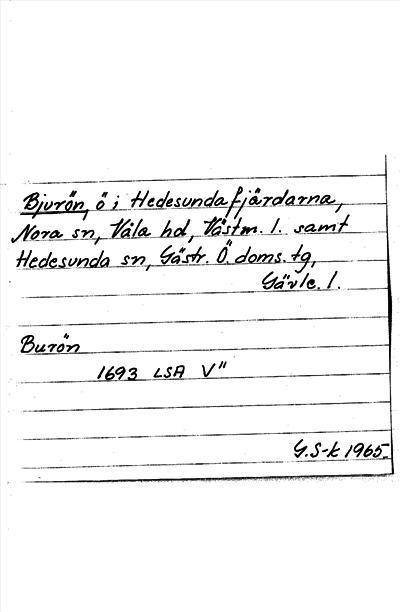 Bjurön, ö i Hedesundafjärdarna,
Nora sn, Våla hd, Västm. l. samt
Hedesunda sn, Gästr. Ö. doms. tg,
Gävle. l.
Burön
1693 LSA V"
G.S-k 1965.